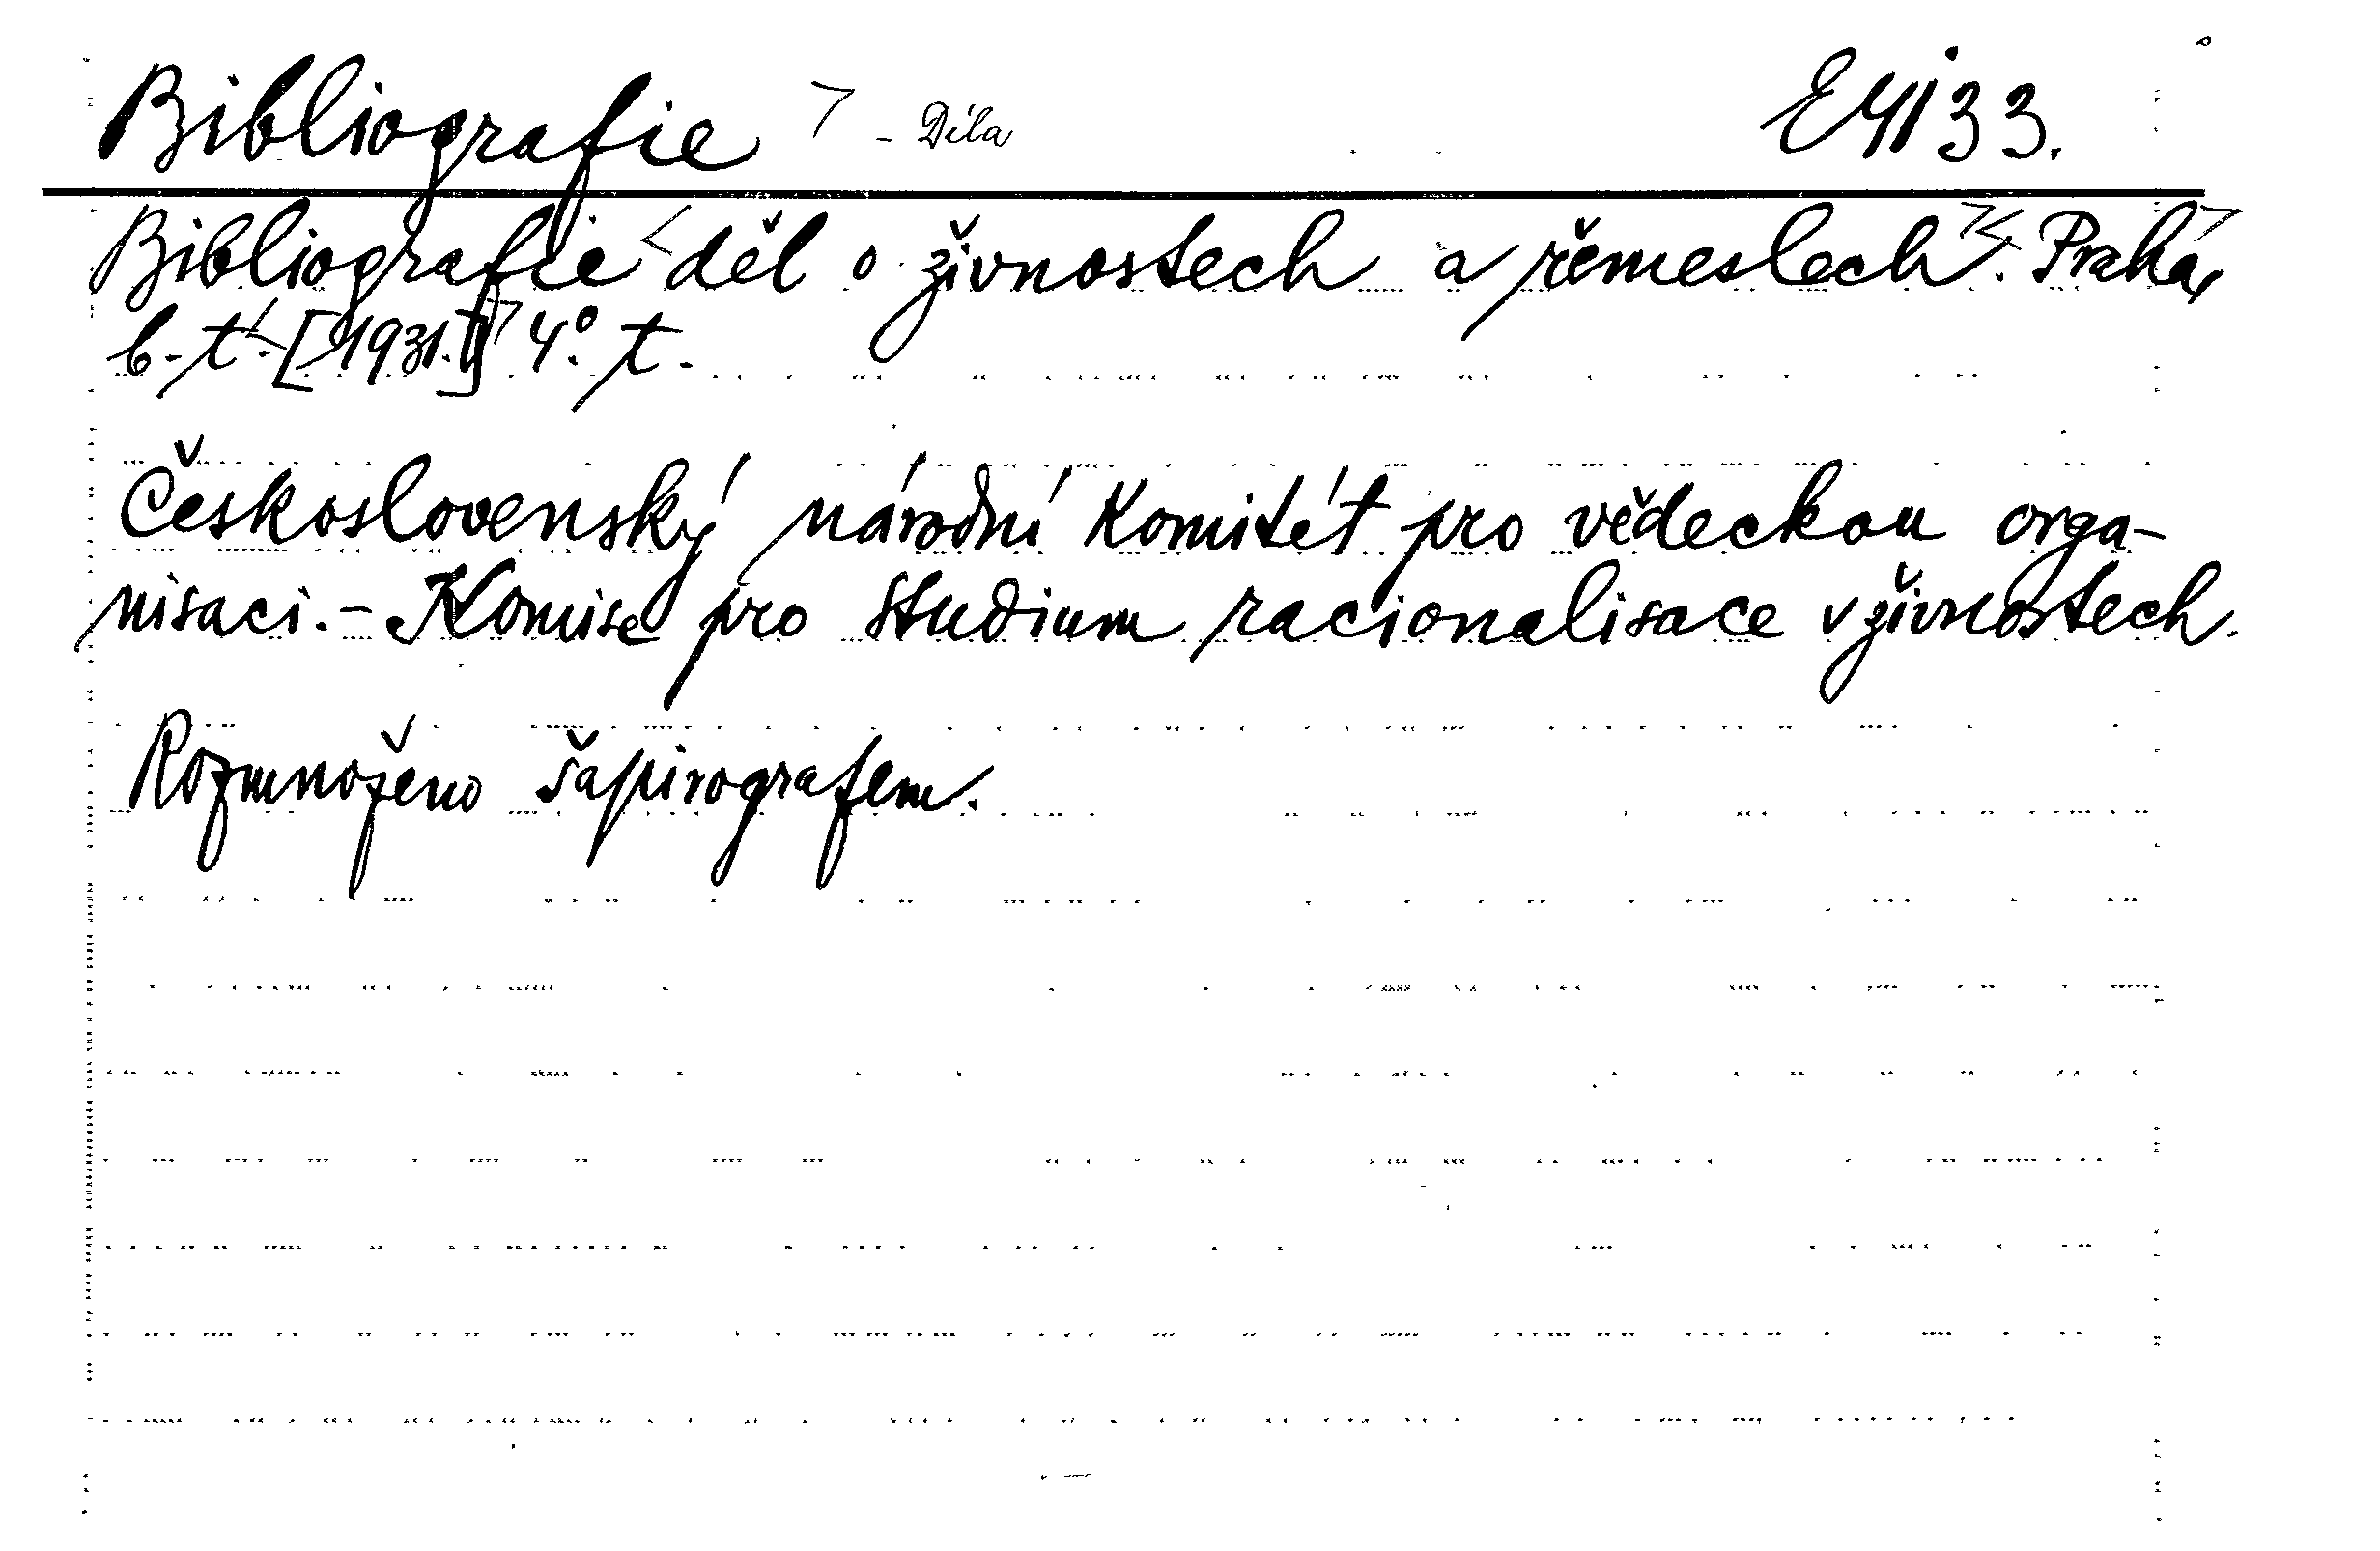 Bibliografie - Díla E4133.
Bibliografie děl o živnostech a řemeslech. Praha,
b. t. [1931.] 4°. t.
Československý národní Komitét pro vědeckou orga-
nisaci. - Komise pro studium racionalisace v živnostech.
Rozmnoženo šapirografem.